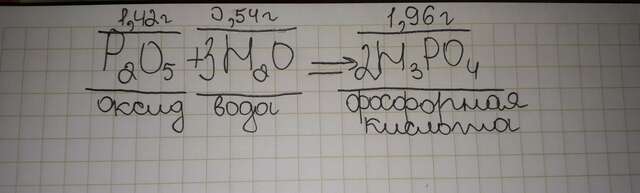 1,42г 0,54г 1,96г
P₂O₅ + 3H₂O ⟹ 2H₃PO₄
оксид вода фосфорная
кислота